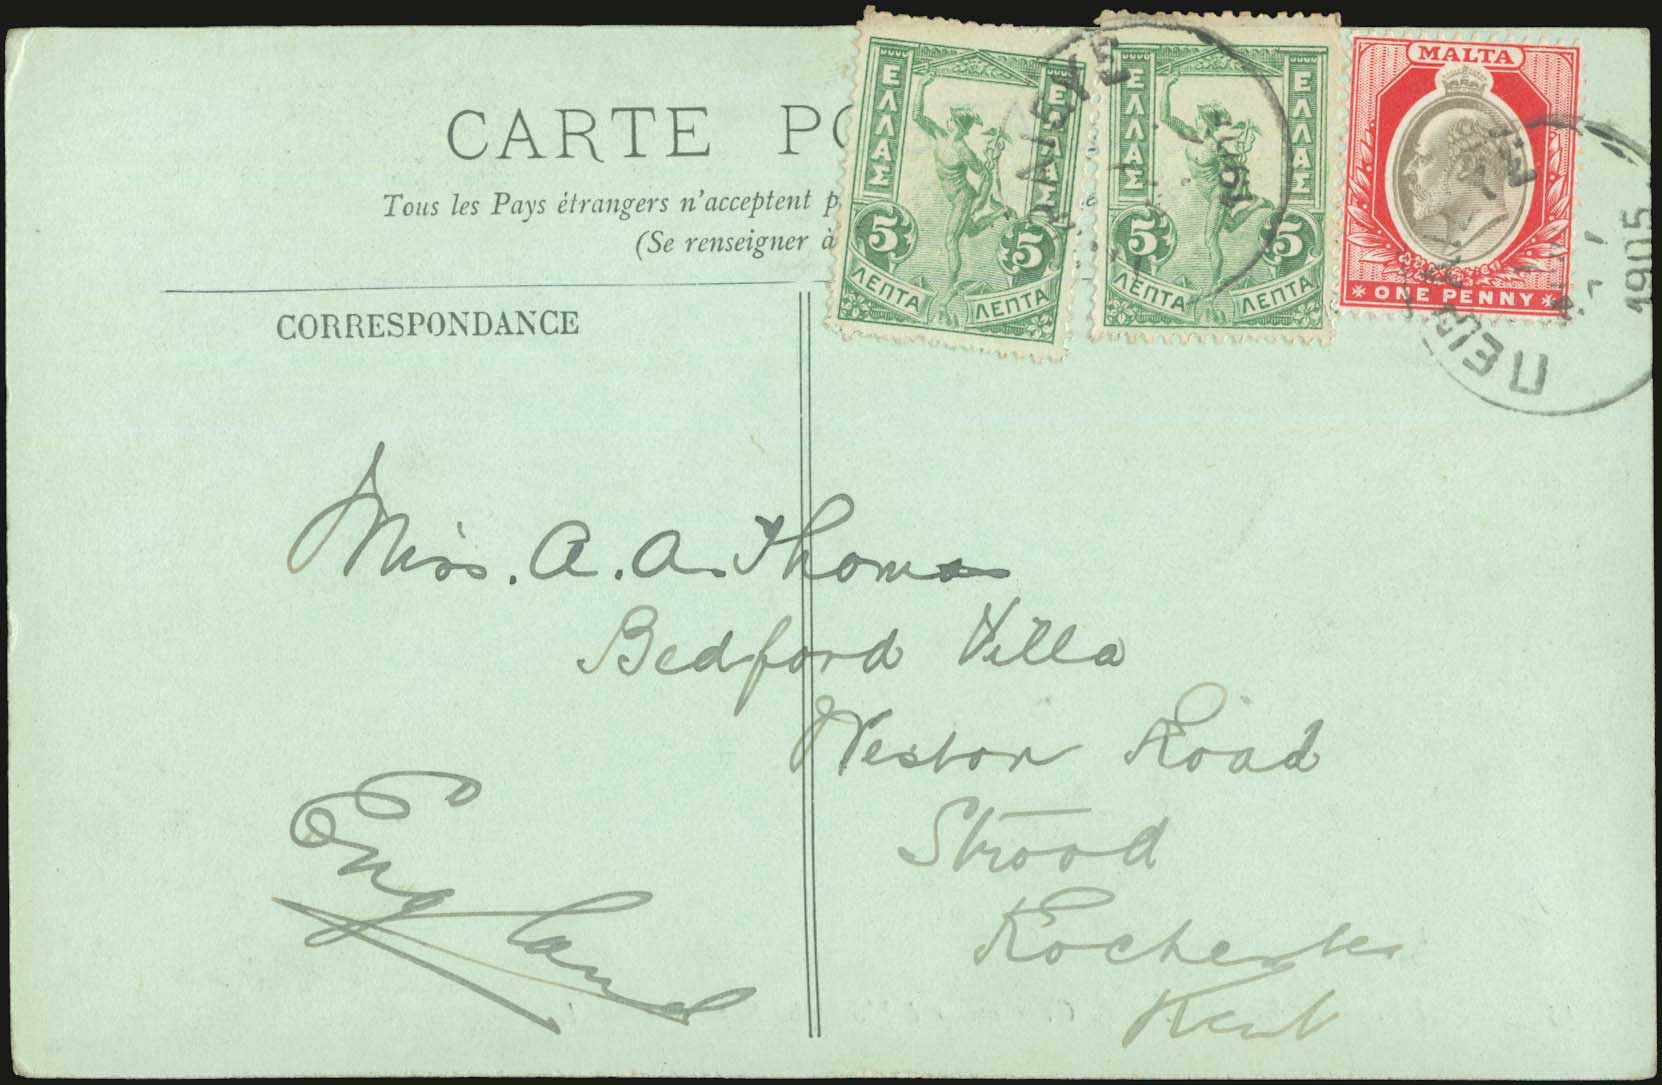 CARTE PO
Tous les Pays étrangers n'acceptent p
(Se renseigner à
CORRESPONDANCE
ΕΛΛΑΣ ΕΛΛΑΣ
5 5
ΛΕΠΤΑ ΛΕΠΤΑ
ΕΛΛΑΣ ΕΛΛΑΣ
5 5
ΛΕΠΤΑ ΛΕΠΤΑ
MALTA
ONE PENNY
1905
1905
Miss. A. A. Thomas
Bedford Villa
Weston Road
Strood
Rochester
Kent
England